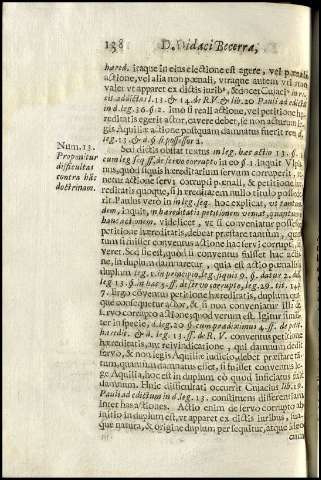 138 D. Didaci Becerra,
hæred. itaque in eius electione est agere, vel pœnali
actione, vel alia non pœnali, vtraque autem vel non
valet vt apparet ex dictis iurib⁹, & docet Cujaci⁹ in
addictu l.13. & 14. de R.V. & lib. 20 Pauli ad edictū
in d. leg. 36. §. 2. Imò si reali actione, vel petitione hæ
reditatis egerit actor, cavere debet, se non acturum le
gis Aquiliæ actione postquam damnatus fuerit reus d.
leg. 13. & d. § si possessor 2.
Num. 13.
Proponitur
difficultas
contra hāc
doctrinam.
Sed dictis obstat textus in leg. hæc actio 13. §. 1.
cum leg. seq. ff. de servo corrupto in eo §. 1. inquit Vlpia
nus, quòd si quis hæreditarium servum corruperit, te
netur actione servi corrupti pœnali, & petitione hæ
reditatis quoque, si hæreditatem nullo titulo possederit.
Paulus vero in leg. seq. hoc explicat, vt tantundem
inquit, in hæreditatis petitionem veniat, quantum
hac actione. videlicet, vt si conveniatur possessor
petitione hæreditatis, debeat præstare tantùm, quan
tum si fuisset conventus actione hac servi corrupti,
veret. Sed sic est, quod si conventus fuisset hac actio
ne, in duplum damnaretur, quia est actio pœnalis in
duplum leg. 1. in principio, leg. si quis 9. §. datur 2. &
leg. 13. §. in hac 5. ff. de servo corrupto, leg. 29. tit. 14.
7. Ergo conventus petitione hæreditatis, duplum quo
que consequetur actor, & si non conveniatur illi
servo corrupto actione; quod verum est. Igitur simili
ter in specie, d. leg. 20 §. cum prædiximus 4. ff. de petit.
hæredit. & d. leg. 13. ff. de R. V. conventus petitione
hæreditatis, aut reivindicatione, qui damnum dedit
servo, & non legis Aquiliæ iudicio, debet præstare tan
tum, quantum damnatus esset, si fuisset conventus le
ge Aquilia, hoc est in duplum eò quod inficiatus sit
damnum. Huic difficultati occurrit Cujacius lib. 19.
Pauli ad edictum in d. leg. 13. constituens differentiam
inter has actiones. Actio enim de servo corrupto ab
initio in duplum est, vt apparet ex dictis iuribus, sua
que natura, & origine duplum persequitur, atque idcirco